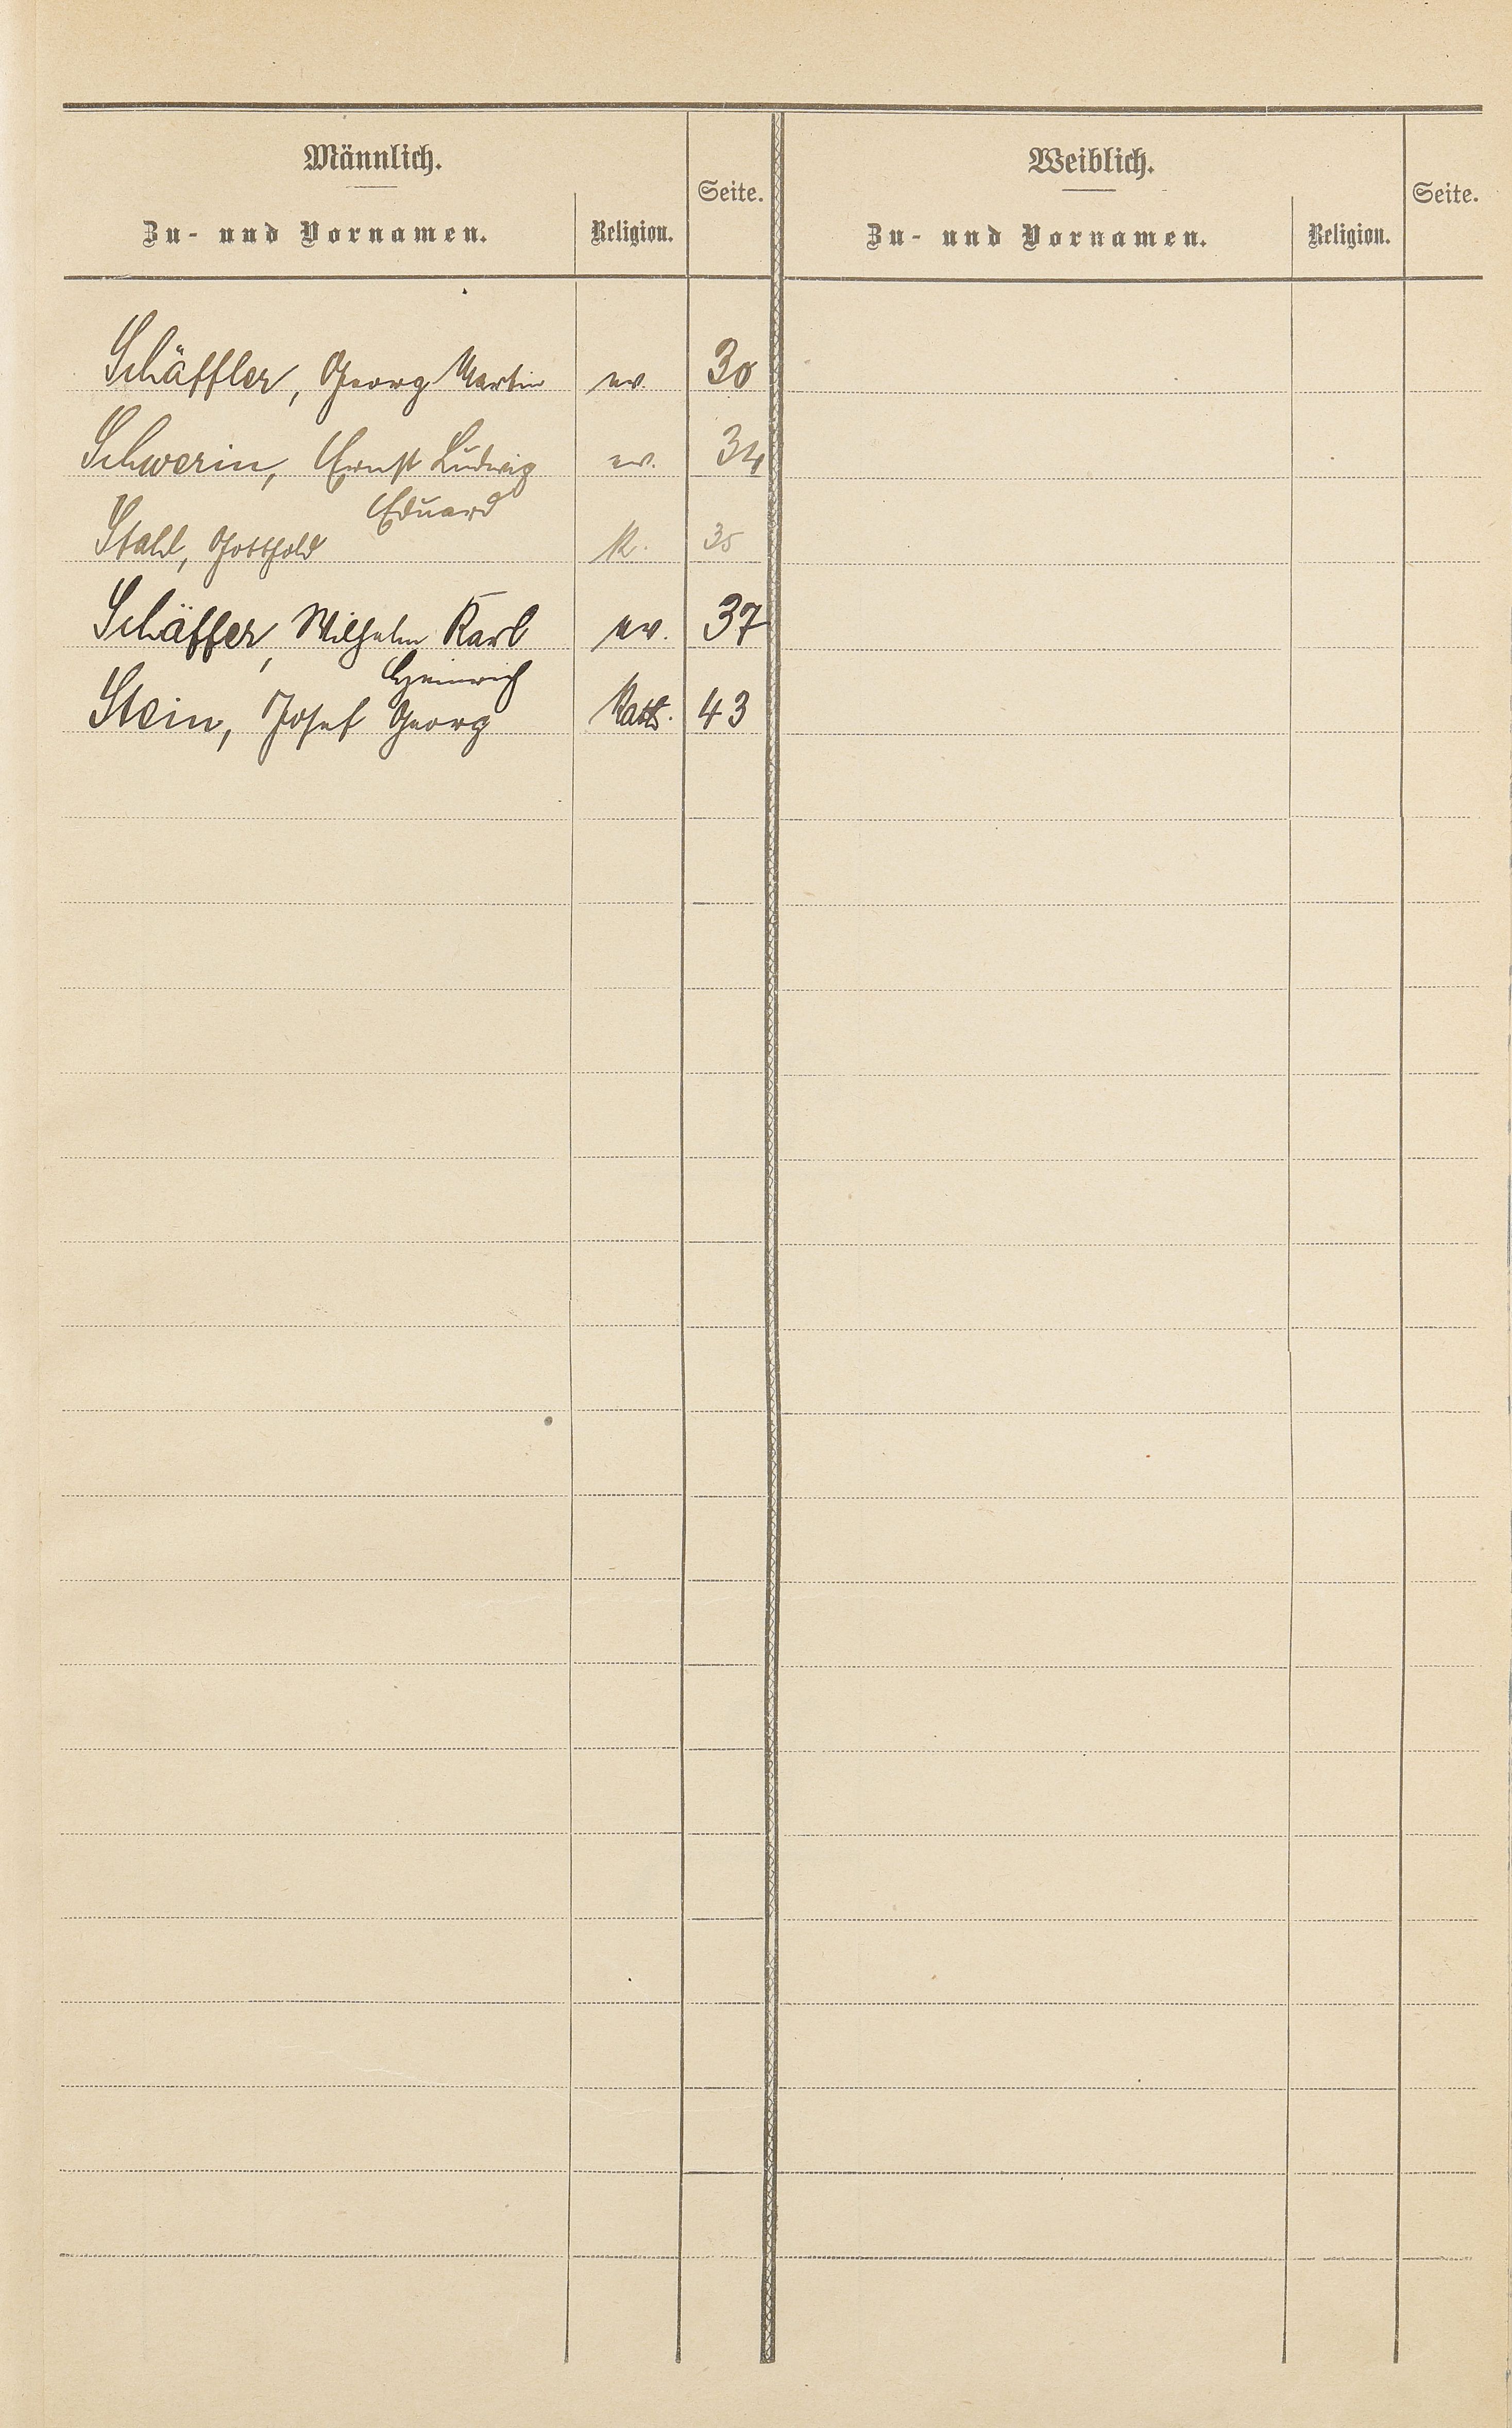 Männlich.
Zu- und Vornamen. Religion. Seite.
Weiblich.
Zu- und Vornamen. Religion. Seite.
Schäffler, Georg Martin ev. 30
Schwerin, Ernst Ludwig ev. 34
Eduard
Stahl, Gotthold K. 35
Schäffer, Wilhelm Karl ev. 37
Heinrich
Stein, Josef Georg Kath. 43